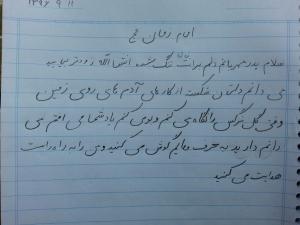 ۱۳۹۶ ۹ ۱۱
امام زمان عج
سلام پدر مهربانم دلم برات تنگ شده انشاالله زودتر بیایید
می دانم دلتان شکسته از کار های آدم های روی زمین
وقتی گل نرگس را نگاه می کنم و بو می کنم یاد شما می افتم می
دانم دارید به حرف هایم گوش می کنید و من را به راه راست
هدایت می کنید